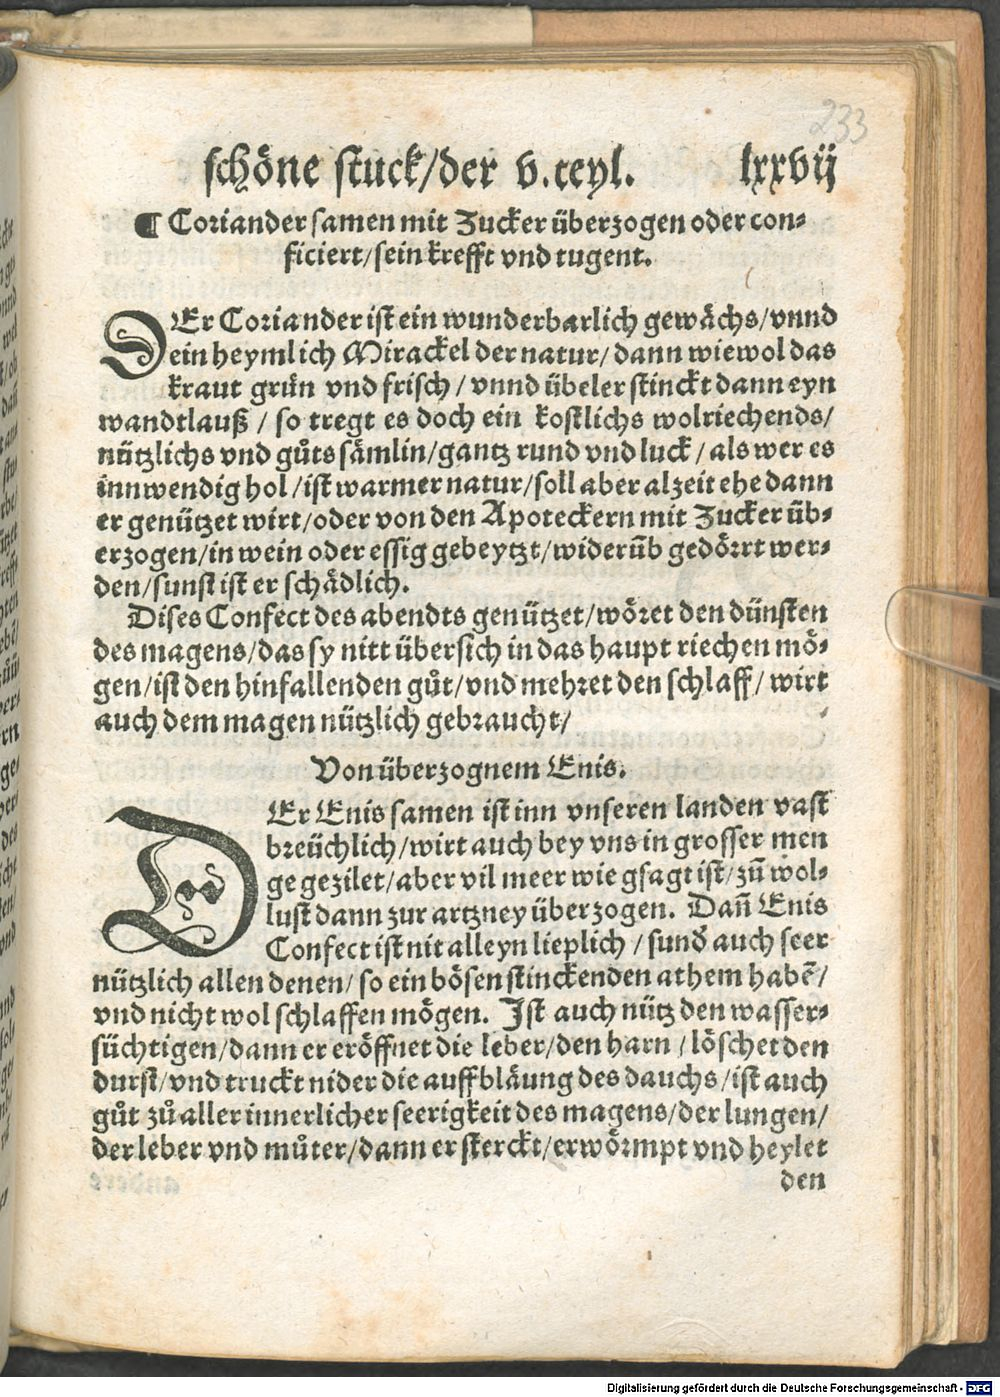 233
schöne stuck/der v.teyl. lxxvij
¶ Coriander samen mit Zucker überzogen oder con-
ficiert/sein krefft vnd tugent.
DEr Coriander ist ein wunderbarlich gewächs/vnnd
ein heymlich Mirackel der natur/dann wiewol das
kraut grün vnd frisch/vnnd übeler stinckt dann eyn
wandtlauß/so tregt es doch ein kostlichs wolriechends/
nützlichs vnd gůts sämlin/gantz rund vnd luck/als wer es
innwendig hol/ist warmer natur/soll aber alzeit ehe dann
er genützet wirt/oder von den Apoteckern mit Zucker üb-
erzogen/in wein oder essig gebeytzt/widerüb gedörrt wer-
den/sunst ist er schädlich.
Dises Confect des abendts genützet/wöret den dünsten
des magens/das sy nitt übersich in das haupt riechen mö-
gen/ist den hinfallenden gůt/vnd mehret den schlaff/wirt
auch dem magen nützlich gebraucht/
Von überzognem Enis.
DEr Enis samen ist inn vnseren landen vast
breüchlich/wirt auch bey vns in grosser men
ge gezilet/aber vil meer wie gsagt ist/zů wol-
lust dann zur artzney überzogen. Dañ Enis
Confect ist nit alleyn lieplich/sund̕ auch seer
nützlich allen denen/so ein bösen stinckenden athem habē/
vnd nicht wol schlaffen mögen. Ist auch nütz den wasser-
süchtigen/dann er eröffnet die leber/den harn/löschet den
durst/vnd truckt nider die auffbläung des bauchs/ist auch
gůt zů aller innerlicher seerigkeit des magens/der lungen/
der leber vnd můter/dann er sterckt/erwörmpt vnd heylet
den
Digitalisierung gefördert durch die Deutsche Forschungsgemeinschaft - DFG